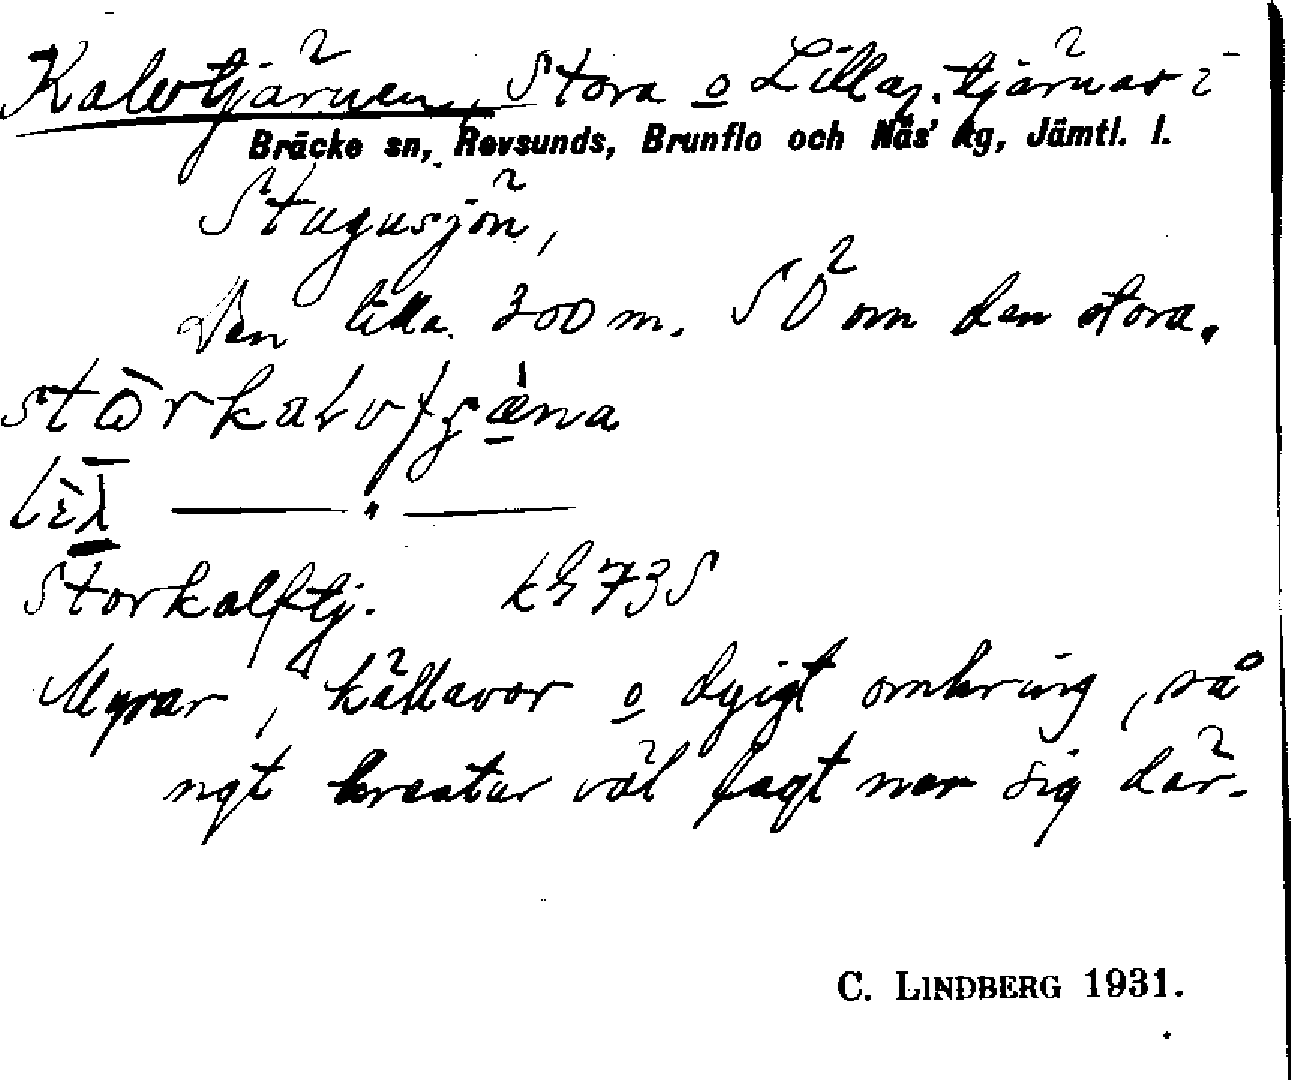 Kalvtjärnen, Stora o Lilla, tjärnar i
Bräcke sn, Revsunds, Brunflo och Näs' tg, Jämtl. l.
Stugusjön,
Den lilla 300 m. SÖ om den stora.
Storkalftj. kb 73 S
Myrar, källavor o dyigt omkring, så
ngt kreatur väl lagt ner sig där.
C. LINDBERG 1931.